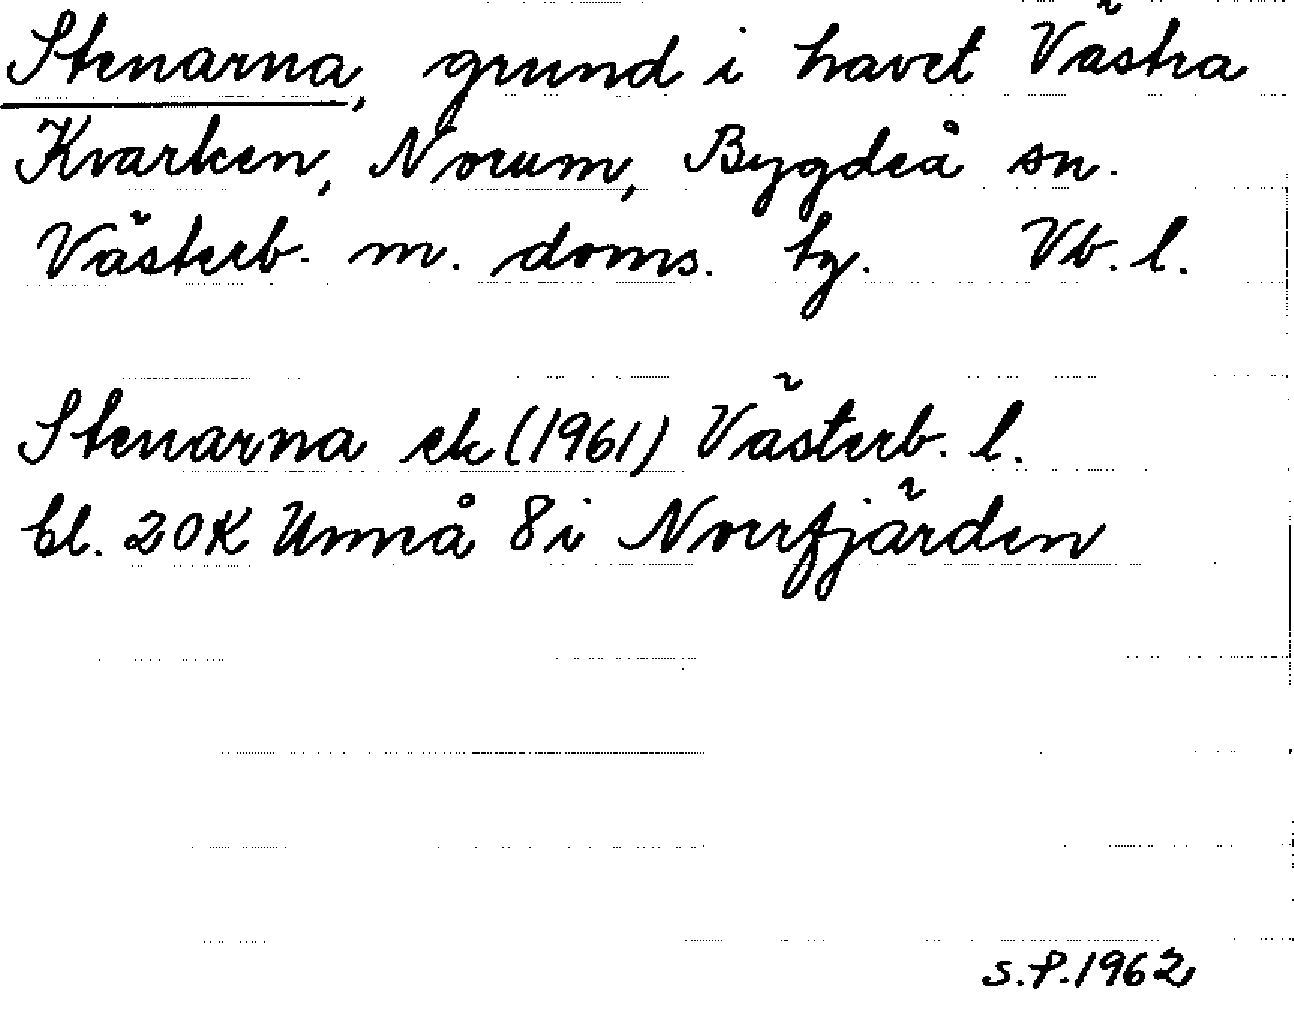 Stenarna, grund i havet Västra
Kvarken, Norum, Bygdeå sn.
Västerb. m. doms. tg. Vb. l.
Stenarna ek (1961) Västerb. l.
bl. 20K Umeå 8i Norrfjärden
S.P. 1962